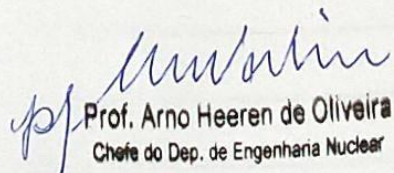 p/ Prof. Arno Heeren de Oliveira
Chefe do Dep. de Engenharia Nuclear